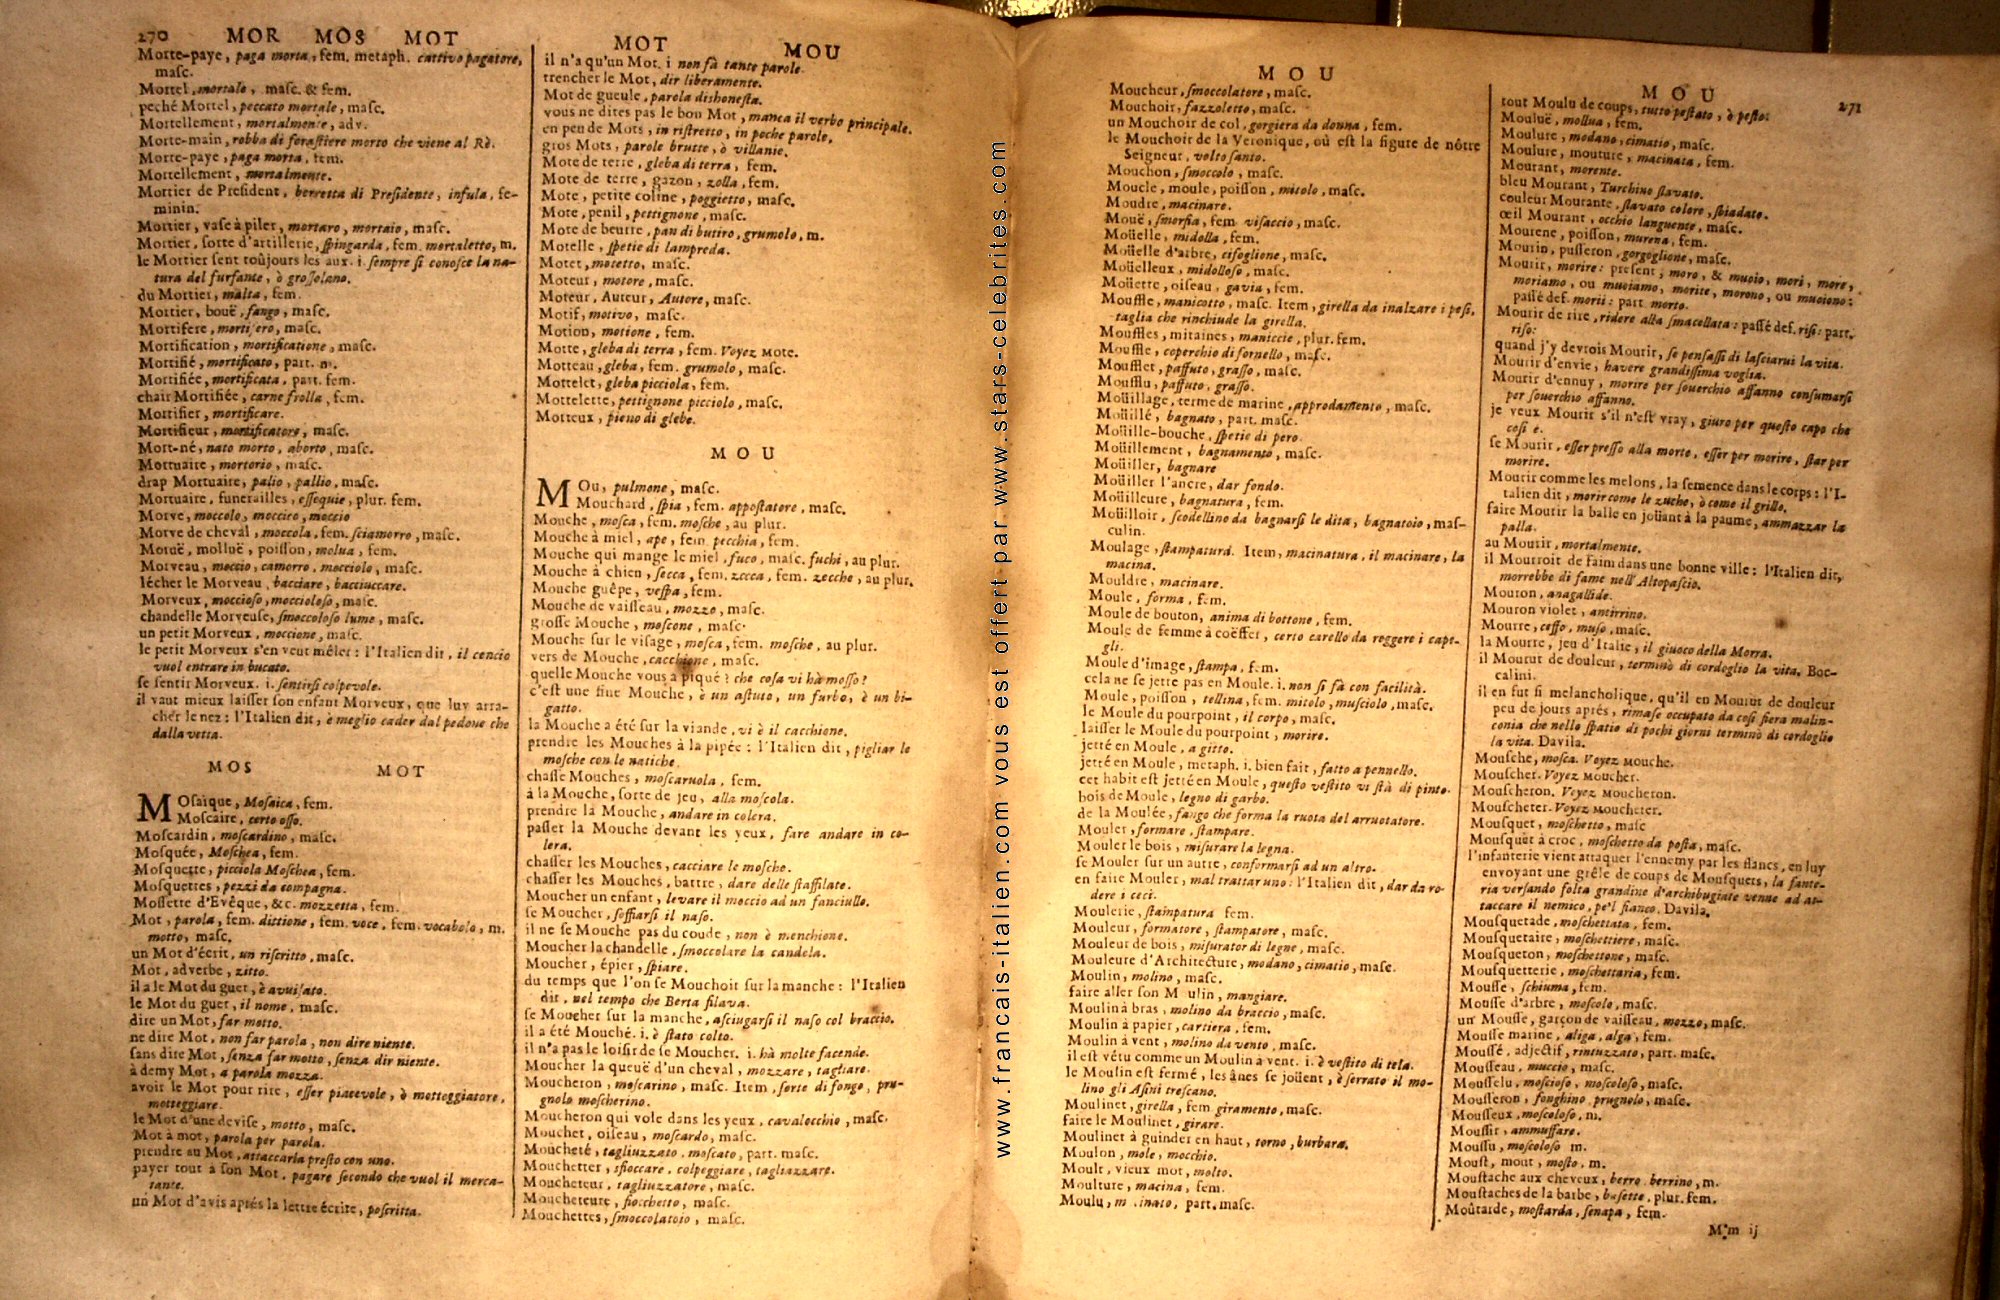 270 MOR MOS MOT
Morte-paye, paga morta, fem. metaph. cattivo pagatore,
masc.
Mortel, mortale, masc. & fem.
peché Mortel, peccato mortale, masc.
Mortellement, mortalmente, adv.
Morte-main, robba di forastiere morto che viene al Rè.
Morte-paye, paga morta, fem.
Mortellement, mortalmente.
Mortier de President, berretta di Presidente, infula, fe-
minin.
Mortier, vase à piler, mortaro, mortaio, masc.
Mortier, sorte d'artillerie, spingarda, fem. mortaletto, m.
le Mortier sent toûjours les aux. i. sempre si conosce la na-
tura del furfante, ò grossolano.
du Mortier, malta, fem.
Mortier, bouë, fango, masc.
Mortifere, mortifero, masc.
Mortification, mortificatione, masc.
Mortifié, mortificato, part. m.
Mortifiée, mortificata, part. fem.
chair Mortifiée, carne frolla, fem.
Mortifier, mortificare.
Mortifieur, mortificatore, masc.
Mort-né, nato morto, aborto, masc.
Mortuaire, mortorio, masc.
drap Mortuaire, palio, pallio, masc.
Mortuaire, funerailles, essequie, plur. fem.
Morve, moccolo, mocciro, moccio
Morve de cheval, moccola, fem. sciamorro, masc.
Moruë, molluë, poisson, molua, fem.
Morveau, moccio, camorro, mocciolo, masc.
lécher le Morveau, bacciare, bacciuccare.
Morveux, moccioso, moccioloso, masc.
chandelle Morveuse, smoccoloso lume, masc.
un petit Morveux, moccione, masc.
le petit Morveux s'en veut mêler: l'Italien dit, il cencio
vuol entrare in bucato.
se sentir Morveux. i. sentirsi colpevole.
il vaut mieux laisser son enfant Morveux, que luy arra-
cher le nez: l'Italien dit, è meglio cader dal pedone che
dalla vetta.
MOS MOT
MOsaique, Mosaica, fem.
Moscaire, certo osso.
Moscardin, moscardino, masc.
Mosquée, Moschea, fem.
Mosquette, picciola Moschea, fem.
Mosquettes, pezzi da compagna.
Mossette d'Evêque, &c. mozzetta, fem.
Mot, parola, fem. dittione, fem. voce, fem. vocabolo, m.
motto, masc.
un Mot d'écrit, un riscritto, masc.
Mot, adverbe, zitto.
il a le Mot du guet, è avuisato.
le Mot du guet, il nome, masc.
dire un Mot, far motto.
ne dire Mot, non far parola, non dire niente.
sans dire Mot, senza far motto, senza dir niente.
à demy Mot, a parola mozza.
avoir le Mot pour rire, esser piacevole, ò motteggiatore,
motteggiare.
le Mot d'une devise, motto, masc.
Mot à mot, parola per parola.
prendre au Mot, attaccarla presto con uno.
payer tout à son Mot, pagare secondo che vuol il merca-
tante.
un Mot d'avis aprés la lettre écrite, poscritta.
MOT MOU
il n'a qu'un Mot. i non fà tante parole.
trencher le Mot, dir liberamente.
Mot de gueule, parola dishonesta.
vous ne dites pas le bon Mot, manca il verbo principale.
en peu de Mots, in ristretto, in poche parole.
gros Mots, parole brutte, ò villanie.
Mote de terre, gleba di terra, fem.
Mote de terre, gazon, zolla, fem.
Mote, petite coline, poggietto, masc.
Mote, penil, pettignone, masc.
Mote de beurre, pan di butiro, grumolo, m.
Motelle, spetie di lampreda.
Motet, motetto, masc.
Moteur, motore, masc.
Moteur, Auteur, Autore, masc.
Motif, motivo, masc.
Motion, motione, fem.
Motte, gleba di terra, fem. Voyez MOte.
Motteau, gleba, fem. grumolo, masc.
Mottelet, gleba picciola, fem.
Mottelette, pettignone picciolo, masc.
Motteux, pieno di glebe.
MOU
MOu, pulmone, masc.
Mouchard, spia, fem. appostatore, masc.
Mouche, mosca, fem. mosche, au plur.
Mouche à miel, ape, fem. pecchia, fem.
Mouche qui mange le miel, fuco, masc. fuchi, au plur.
Mouche à chien, secca, fem. zecca, fem. zecche, au plur.
Mouche guêpe, vespa, fem.
Mouche de vaisseau, mozzo, masc.
grosse Mouche, moscone, masc.
Mouche sur le visage, mosca, fem. mosche, au plur.
vers de Mouche, cacchione, masc.
quelle Mouche vous a piqué? che cosa vi hà mosso?
c'est une fine Mouche, è un astuto, un furbo, è un bi-
gatto.
la Mouche a été sur la viande, vi è il cacchione.
prendre les Mouches à la pipée: l'Italien dit, pigliar le
mosche con le natiche.
chasse Mouches, moscaruola, fem.
à la Mouche, sorte de jeu, alla moscola.
prendre la Mouche, andare in colera.
passer la Mouche devant les yeux, fare andare in co-
lera.
chasser les Mouches, cacciare le mosche.
chasser les Mouches, battre, dare delle staffilate.
Moucher un enfant, levare il moccio ad un fanciullo.
se Moucher, soffiarsi il naso.
il ne se Mouche pas du coude, non è menchione.
Moucher la chandelle, smoccolare la candela.
Moucher, épier, spiare.
du temps que l'on se Mouchoit sur la manche: l'Italien
dit, nel tempo che Berta filava.
se Moucher sur la manche, asciugarsi il naso col braccio.
il a été Mouché. i. è stato colto.
il n'a pas le loisir de se Moucher. i. hà molte facende.
Moucher la queuë d'un cheval, mozzare, tagliare.
Moucheron, moscarino, masc. Item, sorte di fongo, pru-
gnolo moscherino.
Moucheron qui vole dans les yeux, cavalocchio, masc.
Mouchet, oiseau, moscardo, masc.
Moucheté, tagliuzzato, moscato, part. masc.
Mouchetter, sfioccare, colpeggiare, tagliazzare.
Moucheteur, tagliuzzatore, masc.
Moucheteure, fiocchetto, masc.
Mouchettes, smoccolatoio, masc.
www.francais-italien.com vous est offert par www.stars-celebrites.com
MOU
Moucheur, smoccolatore, masc.
Mouchoir, fazzoletto, masc.
un Mouchoir de col, gorgiera da donna, fem.
le Mouchoir de la Veronique, où est la figure de nôtre
Seigneur, volto santo.
Mouchon, smoccolo, masc.
Moucle, moule, poisson, mitolo, masc.
Moudre, macinare.
Mouë, smorfia, fem. visaccio, masc.
Moüelle, midolla, fem.
Moüelle d'arbre, cifoglione, masc.
Moüelleux, midolloso, masc.
Moüette, oiseau, gavia, fem.
Mouffle, manicotto, masc. Item, girella da inalzare i pesi,
taglia che rinchiude la girella.
Mouffles, mitaines, maniccie, plur. fem.
Mouffle, coperchio di fornello, masc.
Moufflet, paffuto, grasso, masc.
Moufflu, paffuto, grasso.
Moüillage, terme de marine, approdamento, masc.
Moüillé, bagnato, part. masc.
Moüille-bouche, spetie di pero.
Moüillement, bagnamento, masc.
Moüiller, bagnare
Moüiller l'ancre, dar fondo.
Moüilleure, bagnatura, fem.
Moüilloir, scodellino da bagnarsi le dita, bagnatoio, mas-
culin.
Moulage, stampatura. Item, macinatura, il macinare, la
macina.
Mouldre, macinare.
Moule, forma, fem.
Moule de bouton, anima di bottone, fem.
Moule de femme à coëffer, certo carello da reggere i cape-
gli.
Moule d'image, stampa, fem.
cela ne se jette pas en Moule. i. non si fà con facilità.
Moule, poisson, tellina, fem. mitolo, musciolo, masc.
le Moule du pourpoint, il corpo, masc.
laisser le Moule du pourpoint, morire.
jetté en Moule, a gitto.
jetté en Moule, metaph. i. bien fait, fatto a pennello.
cet habit est jetté en Moule, questo vestito vi stà di pinto.
bois de Moule, legno di garbo.
de la Moulée, fango che forma la ruota del arruotatore.
Mouler, formare, stampare.
Mouler le bois, misurare la legna.
se Mouler sur un autre, conformarsi ad un altro.
en faire Mouler, mal trattar uno: l'Italien dit, dar da ro-
dere i ceci.
Moulerie, stampatura fem.
Mouleur, formatore, stampatore, masc.
Mouleur de bois, misurator di legne, masc.
Mouleure d'Architecture, modano, cimatio, masc.
Moulin, molino, masc.
faire aller son Moulin, mangiare.
Moulin à bras, molino da braccio, masc.
Moulin à papier, cartiera, fem.
Moulin à vent, molino da vento, masc.
il est vétu comme un Moulin à vent. i. è vestito di tela.
le Moulin est fermé, les ânes se joüent, è serrato il mo-
lino gli Asini trescano.
Moulinet, girella, fem giramento, masc.
faire le Moulinet, girare.
Moulinet à guinder en haut, torno, burbara.
Moulon, mole, mocchio.
Moult, vieux mot, molto.
Moulture, macina, fem.
Moulu, macinato, part. masc.
MOU 271
tout Moulu de coups, tutto pestato, ò pesto.
Mouluë, mollua, fem.
Moulure, modano, cimatio, masc.
Moulure, mouture, macinata, fem.
Mourant, morente.
bleu Mourant, Turchino slavato.
couleur Mourante, slavato colore, sbiadato.
œil Mourant, occhio languente, masc.
Mourene, poisson, murena, fem.
Mourin, pusseron, gorgoglione, masc.
Mourir, morire: present, moro, & muoio, mori, more,
moriamo, ou muoiamo, morite, morono, ou muoiono:
passé def. morii: part. morto.
Mourir de rire, ridere alla smacellata: passé def. risi: part.
riso:
quand j'y devrois Mourir, se pensassi di lasciarui la vita.
Mourir d'envie, havere grandissima voglia.
Mourir d'ennuy, morire per souerchio affanno consumarsi
per souerchio affanno.
je veux Mourir s'il n'est vray, giuro per questo capo che
così è.
se Mourir, esser presso alla morte, esser per morire, star per
morire.
Mourir comme les melons, la semence dans le corps: l'I-
talien dit, morir come le zuche, ò come il grillo.
faire Mourir la balle en joüant à la paume, ammazzar la
palla.
au Mourir, mortalmente.
il Mourroit de faim dans une bonne ville: l'Italien dit,
morrebbe di fame nell'Altopascio.
Mouron, anagallide.
Mouron violet, antirrino.
Mourre, ceffo, muso, masc.
la Mourre, jeu d'Italie, il giuoco della Morra.
il Mourut de douleur, terminò di cordoglio la vita. Boc-
calini.
il en fut si melancholique, qu'il en Mourut de douleur
peu de jours aprés, rimase occupato da così fiera malin-
conia che nello spatio di pochi giorni terminò di cordoglio
la vita. Davila.
Mousche, mosca. Voyez MOuche.
Mouscher. Voyez MOucher.
Mouscheron. Voyez MOucheron.
Mouscheter. Voyez MOucheter.
Mousquet, moschetto, masc
Mousquet à croc, moschetto da posta, masc.
l'infanterie vient attaquer l'ennemy par les flancs, en luy
envoyant une grêle de coups de Mousquets, la fante-
ria versando folta grandine d'archibugiate venne ad at-
taccare il nemico, pe'l fianco. Davila.
Mousquetade, moschettata, fem.
Mousquetaire, moschettiere, masc.
Mousqueton, moschettone, masc.
Mousquetterie, moschettaria, fem.
Mousse, schiuma, fem.
Mousse d'arbre, moscolo, masc.
un Mousse, garçon de vaisseau, mozzo, masc.
Mousse marine, aliga, alga, fem.
Moussé, adjectif, rintuzzato, part. masc.
Mousseau, muccio, masc.
Mousselu, moscioso, moscoloso, masc.
Mousseron, fonghino prugnolo, masc.
Mousseux, moscoloso, m.
Moussir, ammuffare.
Moussu, moscoloso m.
Moust, mout, mosto, m.
Moustache aux cheveux, berro berrino, m.
Moustaches de la barbe, basette, plur. fem.
Moûtarde, mostarda, senapa, fem.
Mm ij